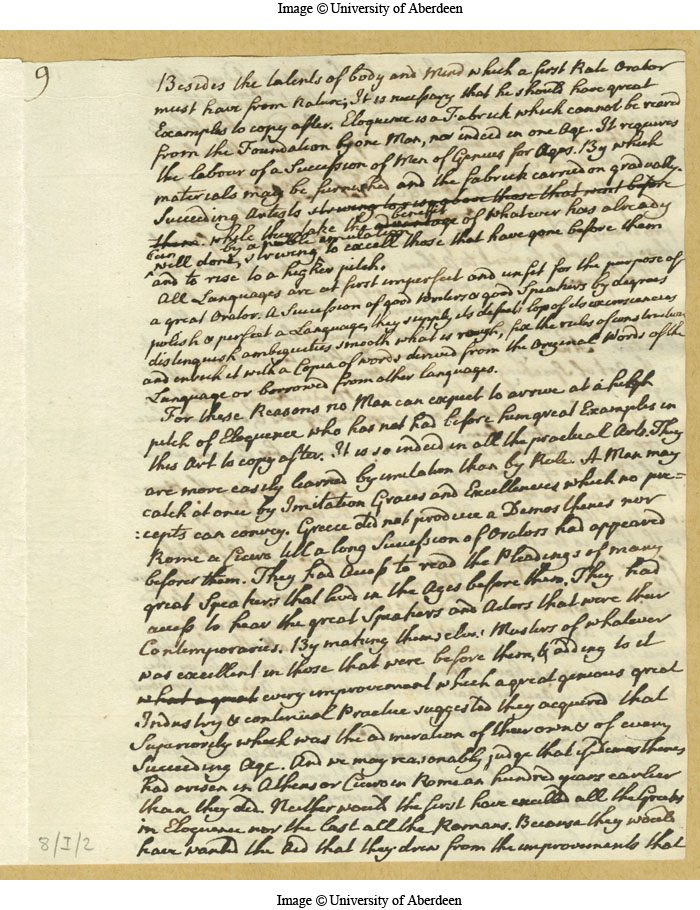 Image © University of Aberdeen
9
Besides the talents of body and Mind which a first Rate Orator
must have from Nature, It is necessary that he should have great
Examples to copy after. Eloquence is a Fabrick which cannot be reard
from the Foundation by one Man, nor indeed in one Age. It requires
the labour of a Succession of Men of Genius for Ages. By which
materials may be furnished and the fabrick carried on gradually.
Succeeding Artists striving to rise above those that went before
them. while they take the advantage benefit of whatever has already
been by a noble emulation
well done, striving to excell those that have gone before them
and to rise to a higher pitch.
All Languages are at first imperfect and unfit for the purpose of
a great Orator. A Succession of good writers & good Speakers by degrees
polish & perfect a Language, they supply its defects lop of its excrescencies
distinguish ambiguities smooth what is rough, fix the rules of construction
and enrich it with a Copia of words derived from the Original Words of the
Language or borrowed from other languages.
For these Reasons no Man can expect to arrive at a high
pitch of Eloquence who has not had before him great Examples in
this Art to copy after. It is so indeed in all the practical Arts. They
are more easily learned by imitation than by Rule. A Man may
catch at one by Imitation Graces and Excellencies which no pre=
:cepts can convey. Greece did not produce a Demosthenes nor
Rome a Cicero till a long Succession of Orators had appeared
before them. They had Access to read the Pleadings of many
great Speakers that lived in the Ages before them. They had
access to hear the great Speakers and Actors that were their
Contemporaries. By making themselves Masters of whatever
was excellent in those that were before them, & adding to it
what a great every improvement which a great genious great
Industry & continual Practice suggested they acquired that
Superiority which was the admiration of their own & of every
Succeeding Age. And we may reasonably judge that if Demosthenes
had arisen in Athens or Cicero in Rome an hundred years earlier
than they did. Neither would the first have excelled all the Greeks
in Eloquence nor the last all the Romans. Because they would
have wanted the Aid that they drew from the improvements that
8/I/2
Image © University of Aberdeen